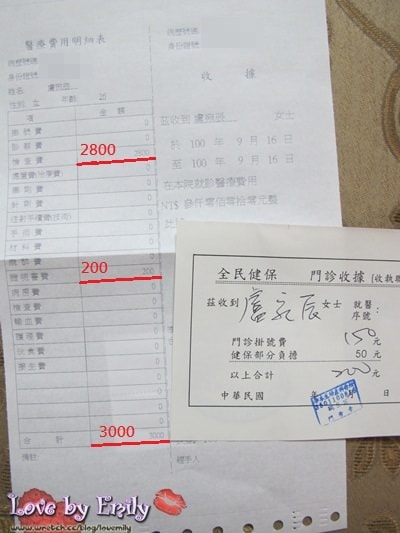 醫療費用明細表
病歷號碼
身份證號
姓名
性別 女 年齡 25
項 金額
掛號費 0
診察費 0
2800
檢查費 2800
藥劑費 0
針劑費 0
手術費 0
材料費 0
200
證明書費 200
病房費 0
檢查費 0
輸血費 0
護理費 0
伙食費 0
3000
合計 3000
備註:
病歷號碼
身份證號
收據
茲收到 女士
於 100 年 9 月 16 日
至 100 年 9 月 16 日
在本院就診醫療費用
NT$ 參仟零佰零拾零元整
此
經手人
全民健保 門診收據 (收執聯
茲收到 盧 辰 女士 就醫序號:
門診掛號費 150 元
健保部分負擔 50 元
以上合計 200 元
中華民國 年 日
Love by Emily
www.wretch.cc/blog/lovemily